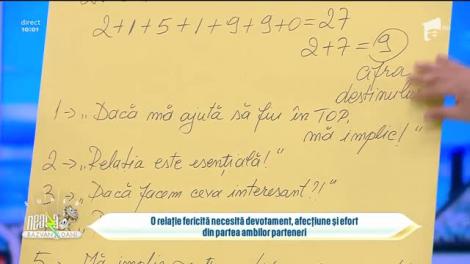 direct
10:01
2+1+5+1+9+9+0=27
2+7=9
cifra
destinului
1 → „Dacă mă ajută să fiu în TOP,
mă implic!"
2 → „Relația este esențială!"
3 → „Dacă facem ceva interesant?!"
neatza
RĂZVAN & DANI
O relație fericită necesită devotament, afecțiune și efort
din partea ambilor parteneri
5 → „Mă implic